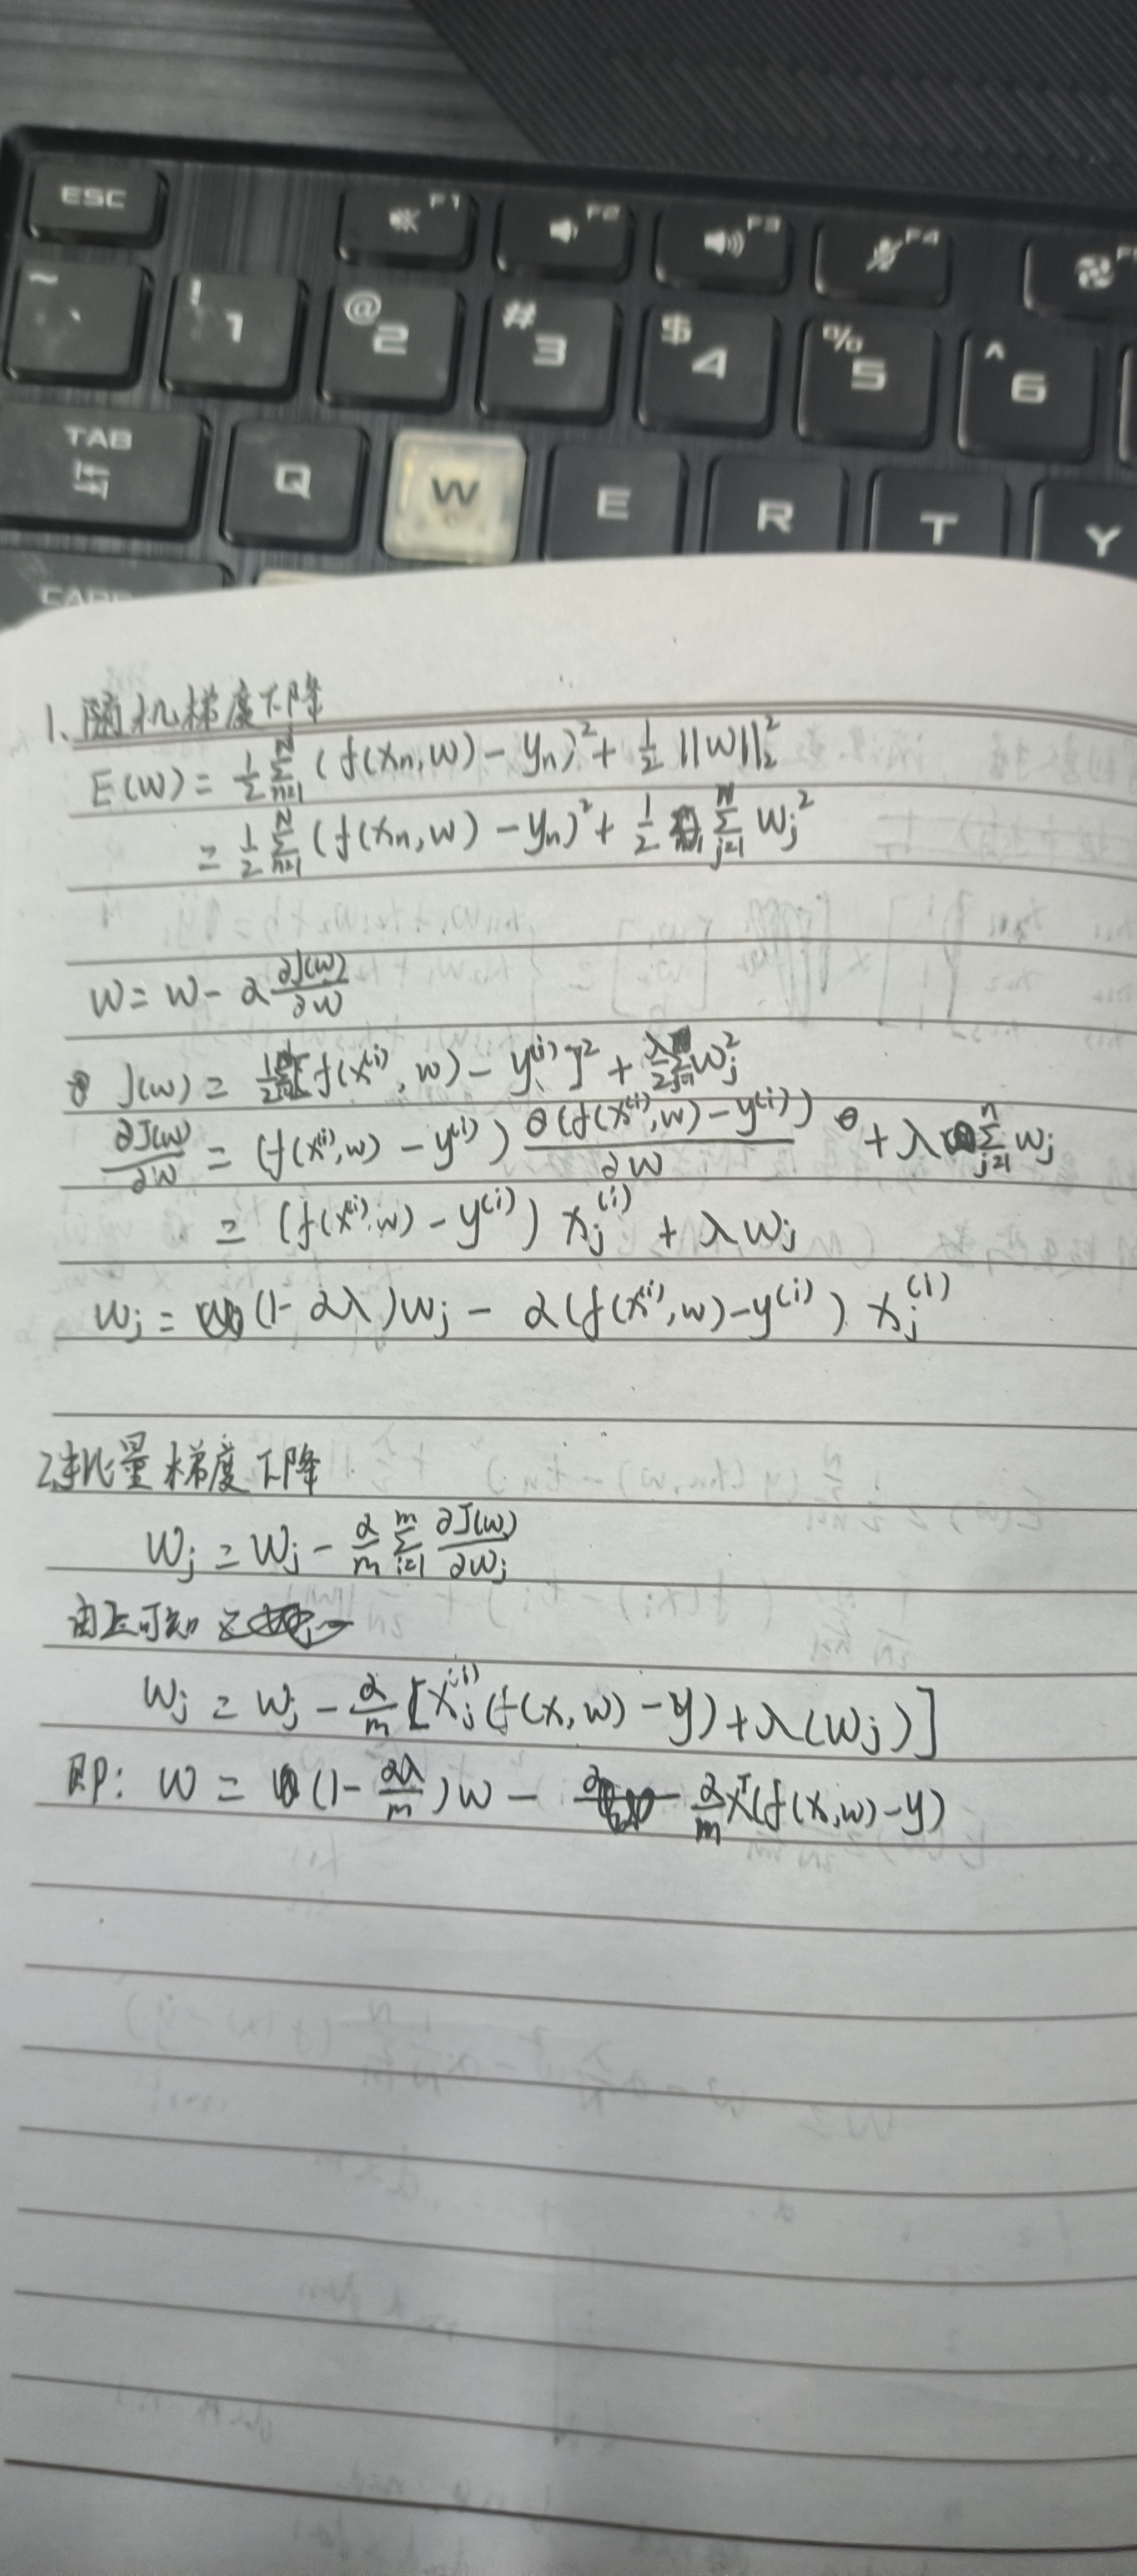 ESC F1 F2 F3 F4
~ ` ! 1 @ 2 # 3 $ 4 % 5 ^ 6
TAB Q W E R T Y
1、随机梯度下降
E(w) = 1/2 Σ_{n=1}^{N} (f(xn, w) - yn)² + 1/2 ||w||₂²
= 1/2 Σ_{n=1}^{N} (f(xn, w) - yn)² + 1/2 Σ_{j=1}^{N} wj²
w = w - α ∂J(w)/∂w
J(w) = 1/2 [f(x^(i), w) - y^(i)]² + λ/2 Σ_{j=1} wj²
∂J(w)/∂w = (f(x^(i), w) - y^(i)) ∂(f(x^(i), w) - y^(i))/∂w + λ Σ_{j=1}^{n} wj
= (f(x^(i), w) - y^(i)) xj^(i) + λwj
wj = (1 - αλ)wj - α(f(x^(i), w) - y^(i)) xj^(i)
2、批量梯度下降
wj = wj - α/m Σ_{i=1}^{m} ∂J(w)/∂wj
由上可知
wj = wj - α/m [xj^(i) (f(x, w) - y) + λ(wj)]
即: w = (1 - αλ/m)w - α/m X^T(f(x, w) - y)